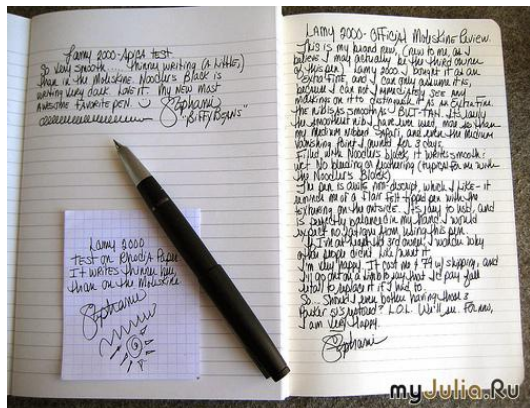 Lamy 2000 - Apica test
So very smooth.... thinner writing (a little,)
than in the Moleskine. Noodler's Black is
writing very dark. Love it. My new most
awesome favorite pen.
Stephanie
"Biffybeans"
Lamy 2000
test on Rhodia Paper
It writes thinner here
than on the Moleskine
Stephanie
Lamy 2000 - Official Moleskine Review.
This is my brand new, (new to me, as I
believe I may actually be the third owner
of this pen) Lamy 2000. I bought it as an
extra fine, and I can only assume it is,
because I can not immediately see any
markings on it to distinguish it as an Extra Fine.
The nib is as smooth as - BUT-TAH. It's easily
the smoothest nib I have ever used, more so than
my medium nibbed Safari, and even the medium
Vanishing Point I owned for 3 days.
Filled with Noodler's black, it writes smooth
wet. No bleeding or feathering (typical for me with
the Noodler's Black)
The pen is quite non-descript, which I like - it
reminds me of a Flair felt tipped pen with the
texturing on the outside. It's easy to hold, and
is perfectly balanced in my hand. I would
expect no fatigue from using this pen.
If I'm at least the 3rd owner, I wonder why
other people didn't like/want it.
I'm very happy. It cost me $79 w/ shipping, and
I'll go out on a limb to say that I'd pay full
retail to replace it if I had to.
So... Should I even bother having those 3
Parker 51's restored? L.O.L. We'll see. For now,
I am very happy.
Stephanie
myJulia.Ru